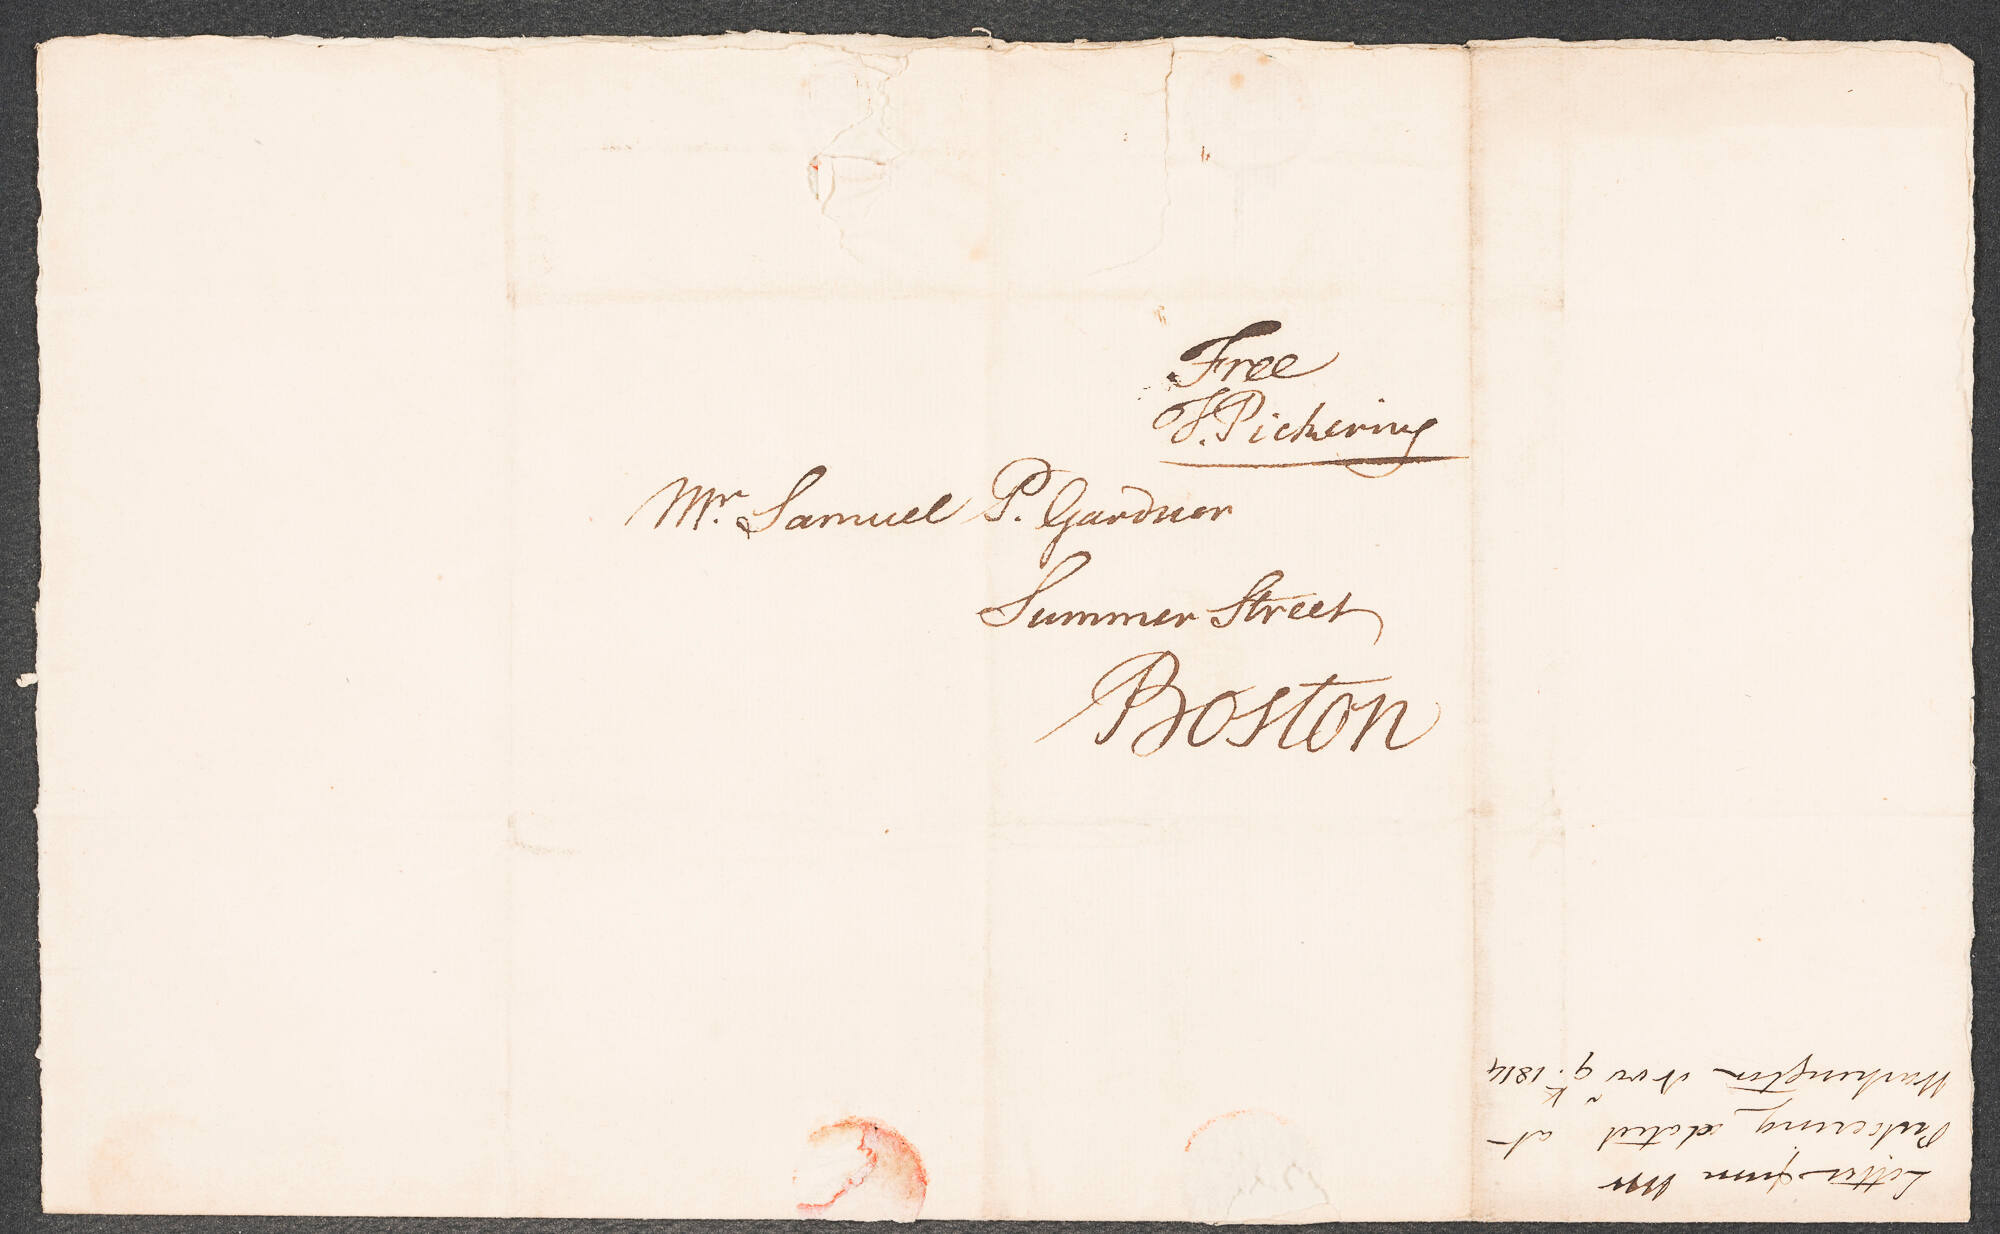 Free
T. Pickering
Mr. Samuel P. Gardner
Summer Street
Boston
Letter from Mr
Pickering dated at
Washington Nov 9th. 1814